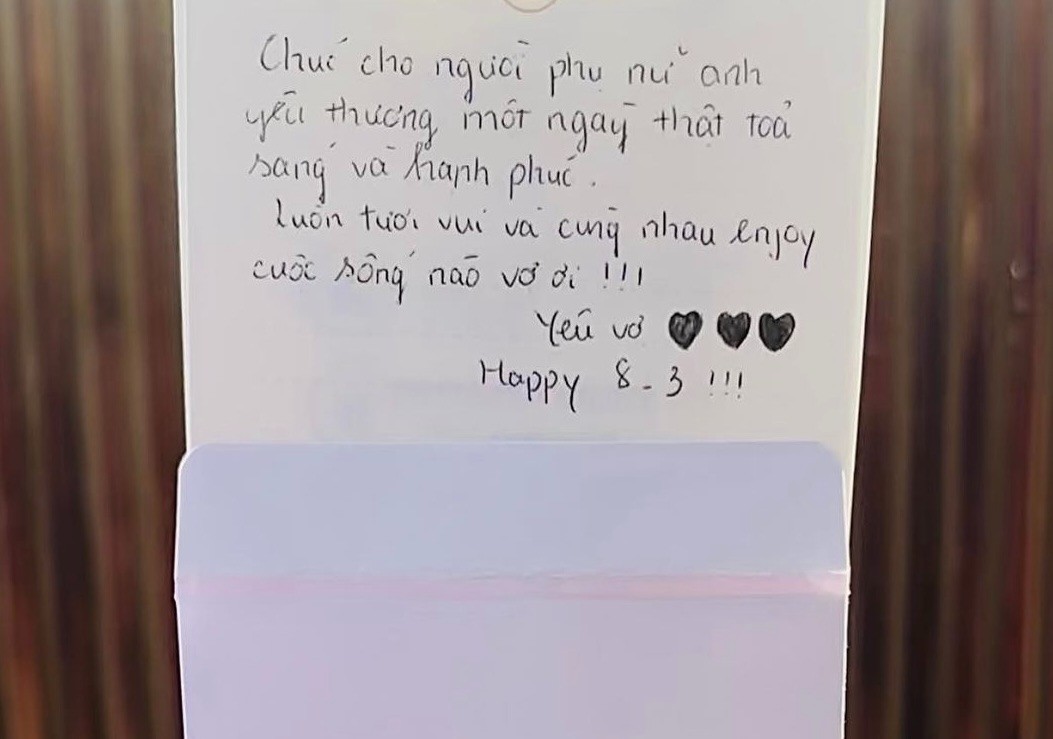 Chúc cho người phụ nữ anh
yêu thương một ngày thật toả
sáng và hạnh phúc.
Luôn tươi vui và cùng nhau enjoy
cuộc sống nào vợ ơi !!!
Yêu vợ ♥ ♥ ♥
Happy 8-3 !!!